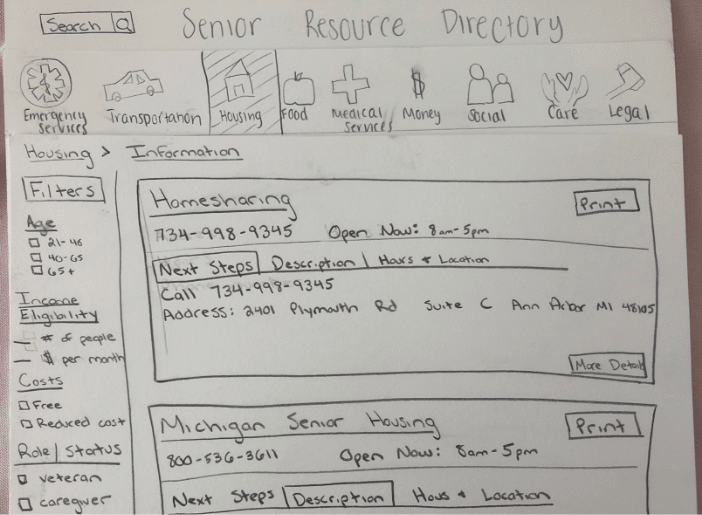 Search
Senior Resource Directory
Emergency Services
Transportation
Housing
Food
Medical Services
Money
Social
Care
Legal
Housing > Information
Filters
Age
21-45
40-65
65+
Income Eligibility
# of people
$ per month
Costs
Free
Reduced cost
Role | Status
veteran
caregiver
Homesharing
Print
734-998-9345 Open Now: 8am-5pm
Next Steps | Description | Hours + Location
Call 734-998-9345
Address: 2401 Plymouth Rd Suite C Ann Arbor MI 48105
More Details
Michigan Senior Housing
Print
800-536-3611 Open Now: 8am-5pm
Next Steps | Description | Hours + Location